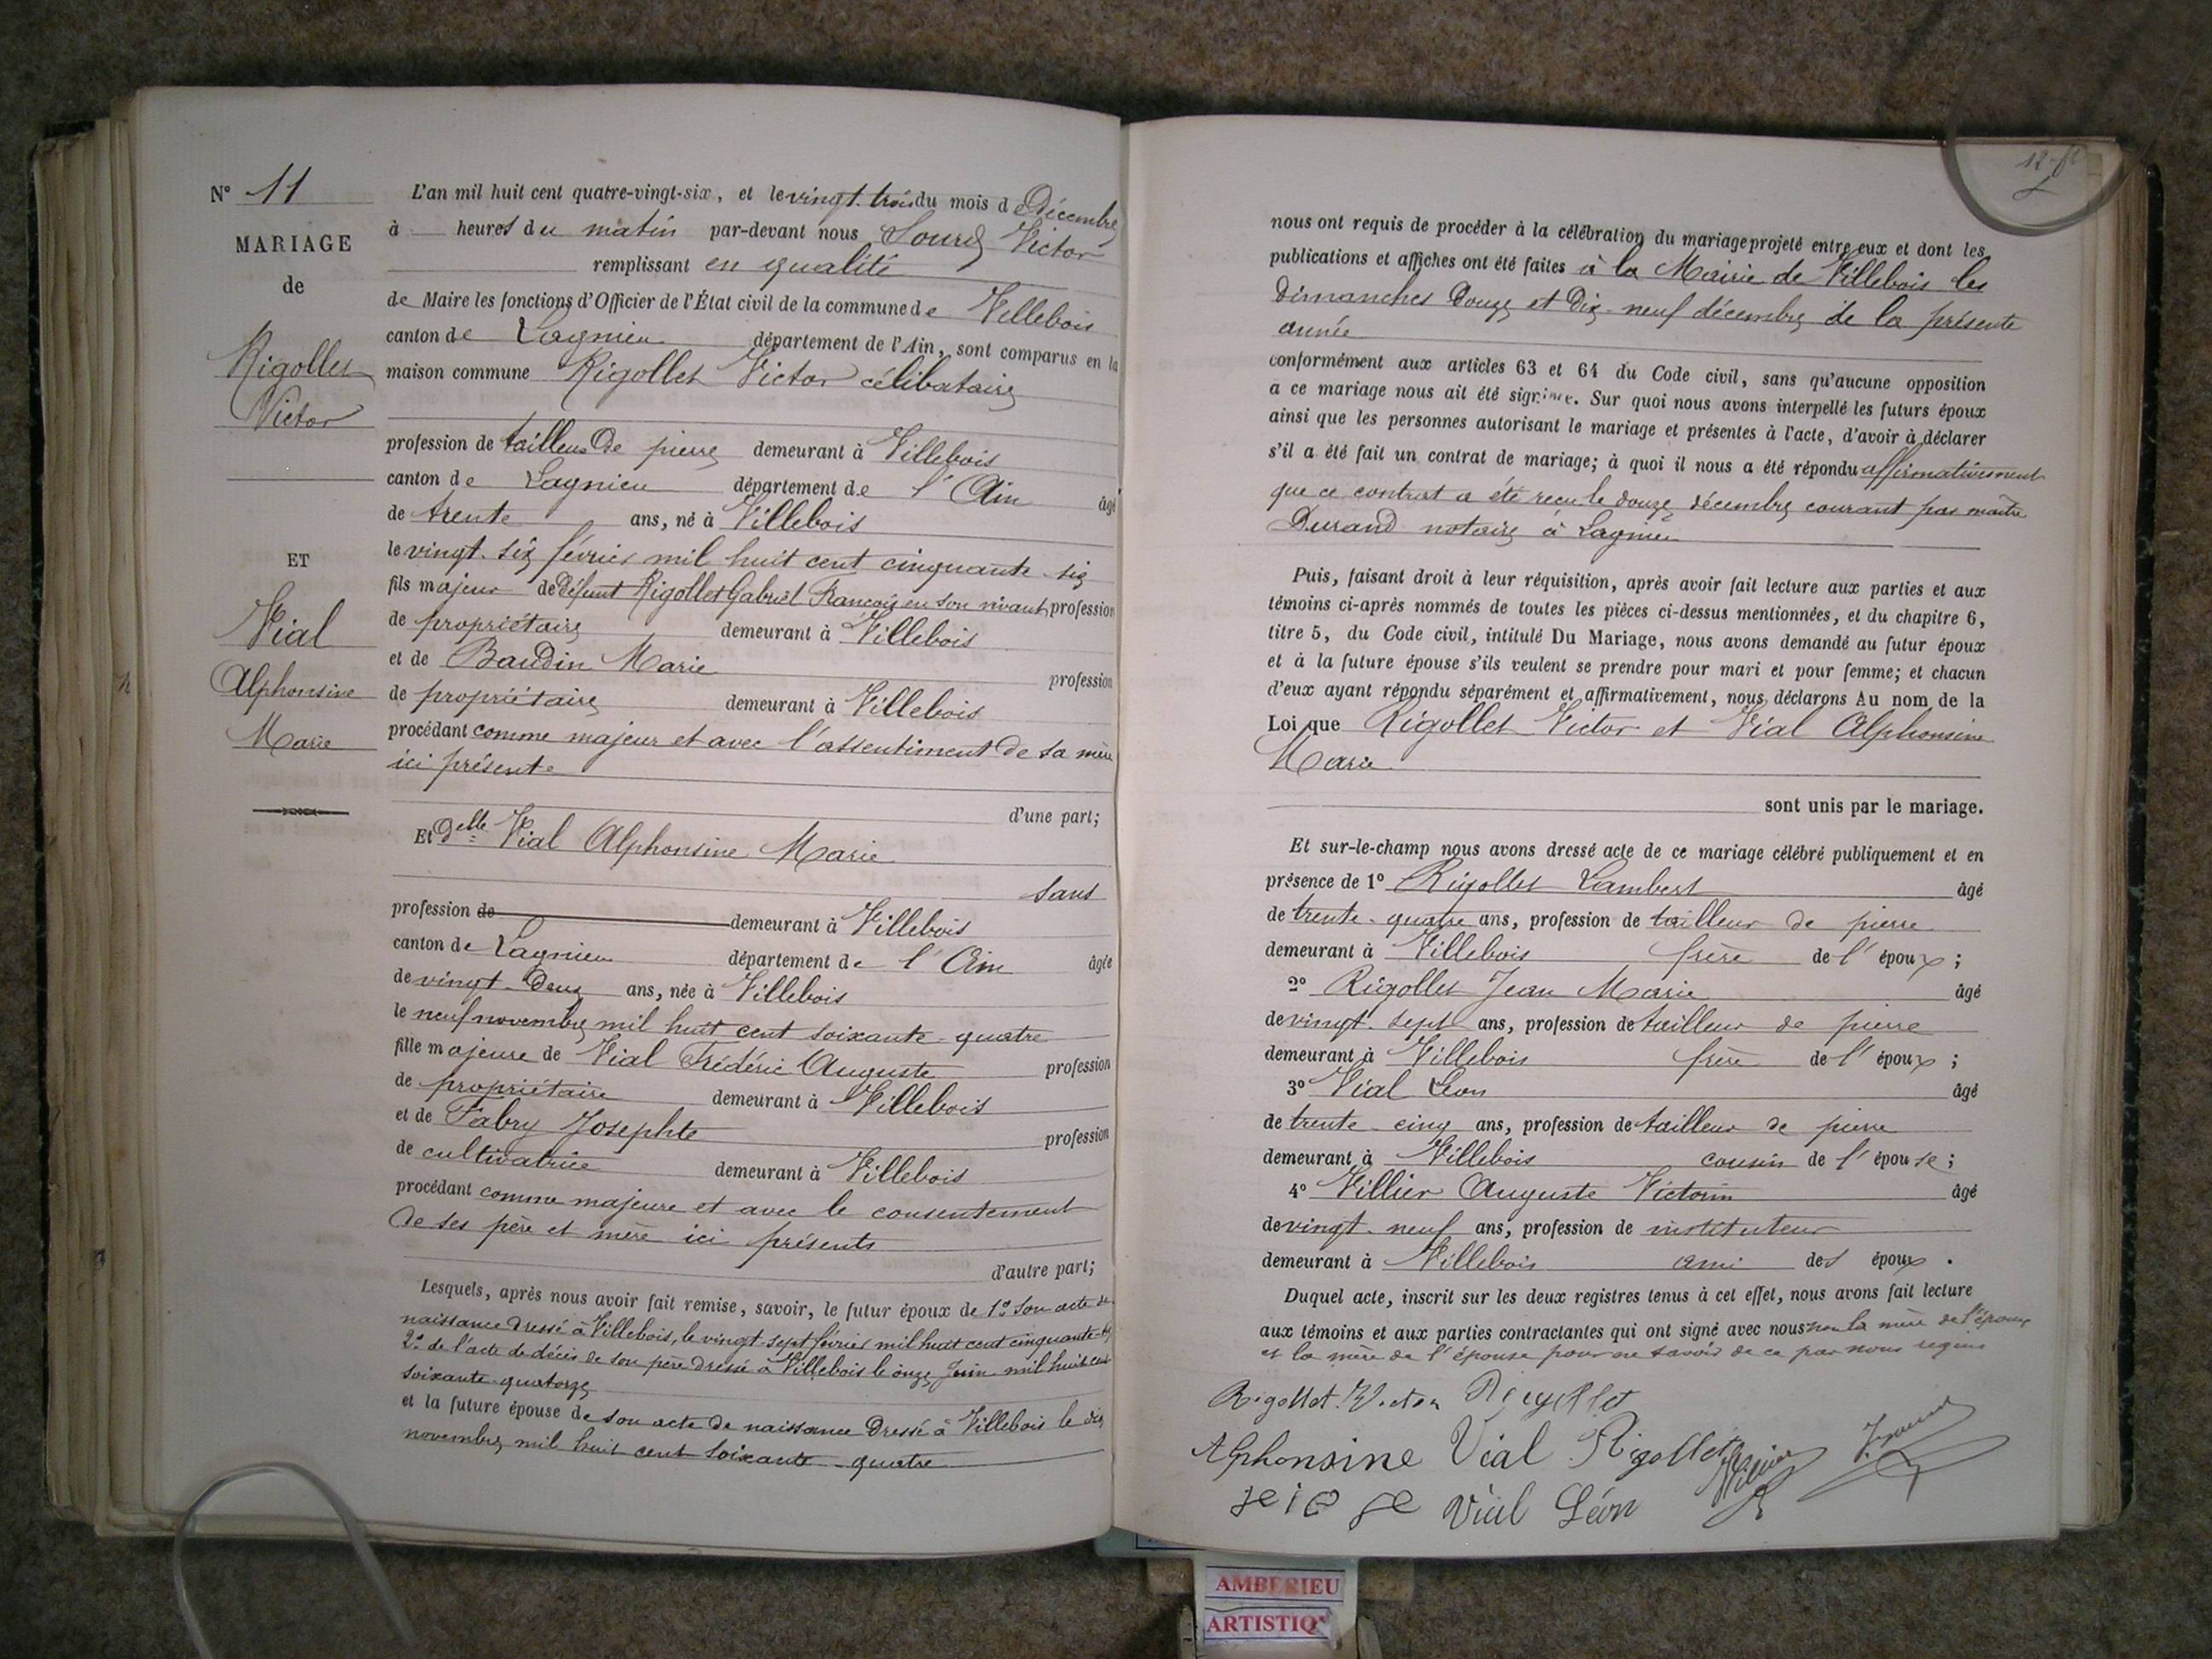 N° 11
MARIAGE
de
Rigollet
Victor
ET
Vial
Alphonsine
Marie
L'an mil huit cent quatre-vingt-six, et le vingt-trois du mois de Décembre
à heures du matin par-devant nous Victor
remplissant en qualité
de Maire les fonctions d'Officier de l'État civil de la commune de Villebois
canton de Lagnieu département de l'Ain, sont comparus en la
maison commune Rigollet Victor célibataire
profession de tailleur de pierre demeurant à Villebois
canton de Lagnieu département de l'Ain âgé
de trente ans, né à Villebois
le vingt-six février mil huit cent cinquante-six
fils majeur de défunt Rigollet Gabriel François en son vivant profession
de propriétaire demeurant à Villebois
et de Baudin Marie profession
de propriétaire demeurant à Villebois
procédant comme majeur et avec l'assentiment de sa mère
ici présente
d'une part;
Et Delle Vial Alphonsine Marie
sans
profession de demeurant à Villebois
canton de Lagnieu département de l'Ain âgée
de vingt-deux ans, née à Villebois
le neuf novembre mil huit cent soixante-quatre
fille majeure de Vial Frédéric Auguste profession
de propriétaire demeurant à Villebois
et de Fabry Josephte profession
de cultivatrice demeurant à Villebois
procédant comme majeure et avec le consentement
de ses père et mère ici présents
d'autre part;
Lesquels, après nous avoir fait remise, savoir, le futur époux de 1° son acte de
naissance dressé à Villebois, le vingt-sept février mil huit cent cinquante-six
2° de l'acte de décès de son père dressé à Villebois le onze Juin mil huit cent
soixante-quatorze
et la future épouse de son acte de naissance dressé à Villebois le dix
novembre mil huit cent soixante-quatre
nous ont requis de procéder à la célébration du mariage projeté entre eux et dont les
publications et affiches ont été faites à la Mairie de Villebois les
dimanches douze et dix-neuf décembre de la présente
année
conformément aux articles 63 et 64 du Code civil, sans qu'aucune opposition
à ce mariage nous ait été signifiée. Sur quoi nous avons interpellé les futurs époux
ainsi que les personnes autorisant le mariage et présentes à l'acte, d'avoir à déclarer
s'il a été fait un contrat de mariage; à quoi il nous a été répondu affirmativement
que ce contrat a été reçu le douze décembre courant par maître
Durand notaire à Lagnieu
Puis, faisant droit à leur réquisition, après avoir fait lecture aux parties et aux
témoins ci-après nommés de toutes les pièces ci-dessus mentionnées, et du chapitre 6,
titre 5, du Code civil, intitulé Du Mariage, nous avons demandé au futur époux
et à la future épouse s'ils veulent se prendre pour mari et pour femme; et chacun
d'eux ayant répondu séparément et affirmativement, nous déclarons Au nom de la
Loi que Rigollet Victor et Vial Alphonsine
Marie
sont unis par le mariage.
Et sur-le-champ nous avons dressé acte de ce mariage célébré publiquement et en
présence de 1° Rigollet Lambert âgé
de trente-quatre ans, profession de tailleur de pierre
demeurant à Villebois frère de l'époux;
2° Rigollet Jean Marie âgé
de vingt-sept ans, profession de tailleur de pierre
demeurant à Villebois frère de l'époux;
3° Vial Léon âgé
de trente-cinq ans, profession de tailleur de pierre
demeurant à Villebois cousin de l'épouse;
4° Villier Auguste Victorin âgé
de vingt-neuf ans, profession de instituteur
demeurant à Villebois ami des époux.
Duquel acte, inscrit sur les deux registres tenus à cet effet, nous avons fait lecture
aux témoins et aux parties contractantes qui ont signé avec nous non la mère de l'époux
et la mère de l'épouse pour ne savoir de ce par nous requis
Rigollet Victor
Alphonsine Vial Rigollet
Vial Léon
AMBERIEU
ARTISTIQ